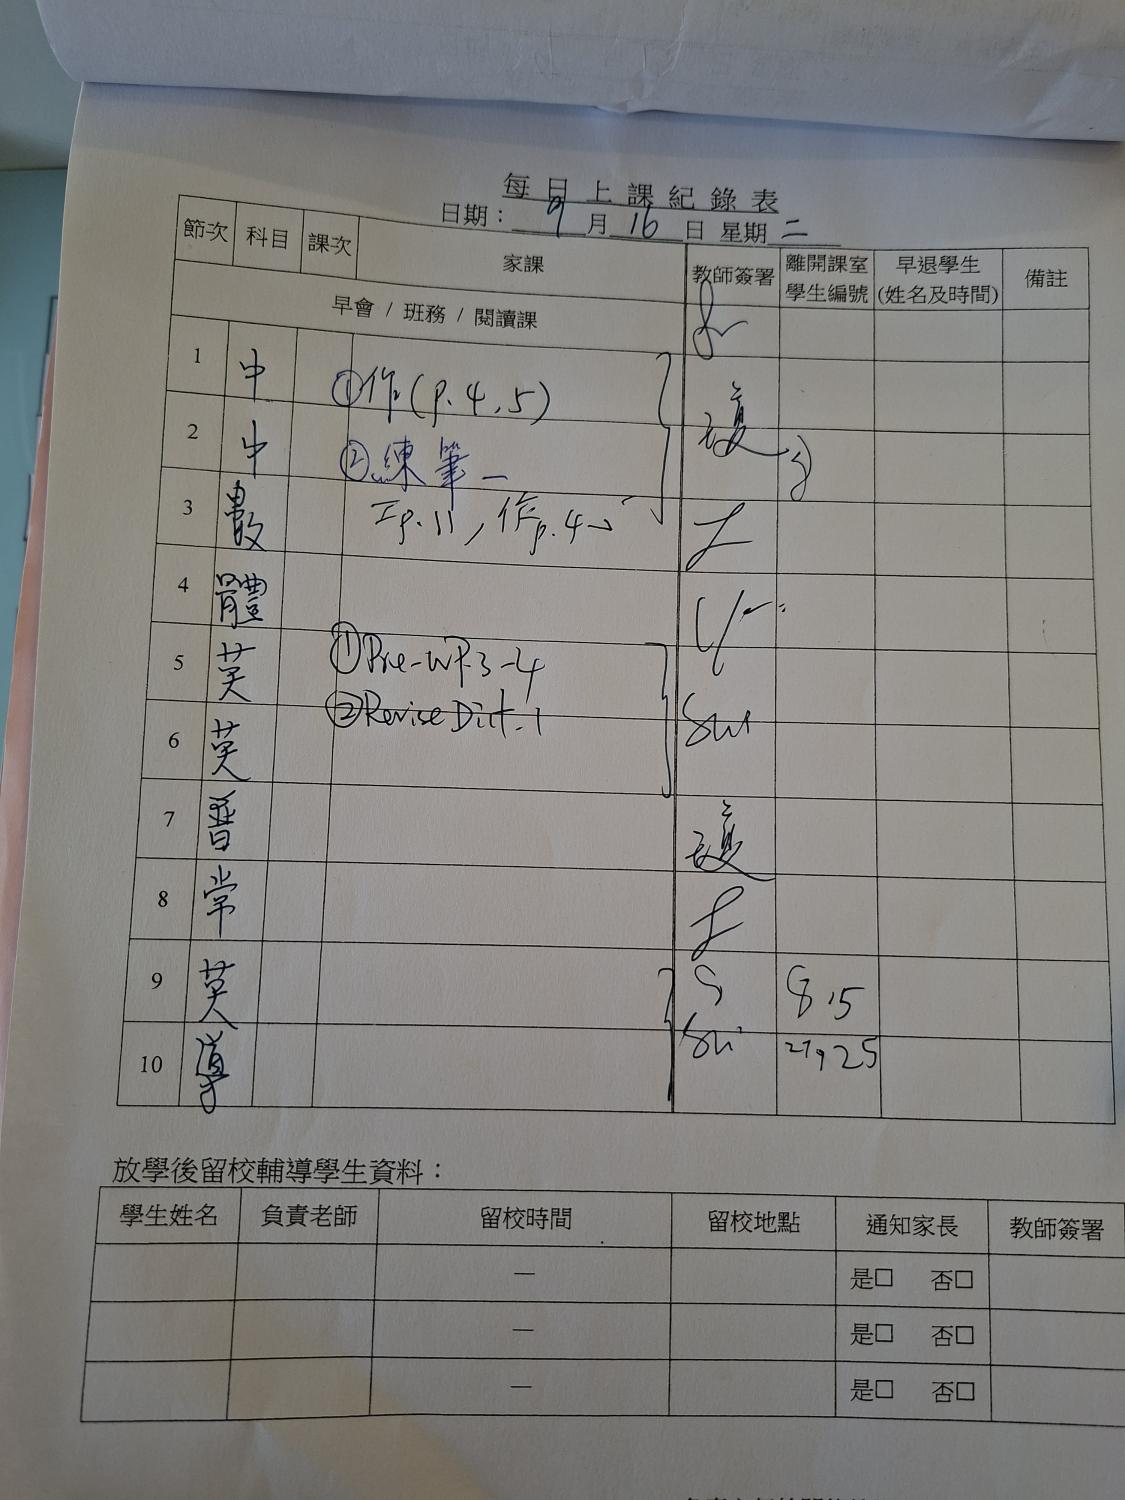 每日上課紀錄表
日期：9月16日 星期二
節次 科目 課次 家課 教師簽署 離開課室學生編號 早退學生(姓名及時間) 備註
早會 / 班務 / 閱讀課
1 中 ①作(p.4,5)
2 中 ②練筆一
3 數 p.11, 作p.4
4 體
5 英 ①Pre-WP.3-4
6 英 ②Revise Dict. 1
7 普
8 常
9 英 8,15
10 導 27,25
放學後留校輔導學生資料：
學生姓名 負責老師 留校時間 留校地點 通知家長 教師簽署
— 是□ 否□
— 是□ 否□
— 是□ 否□